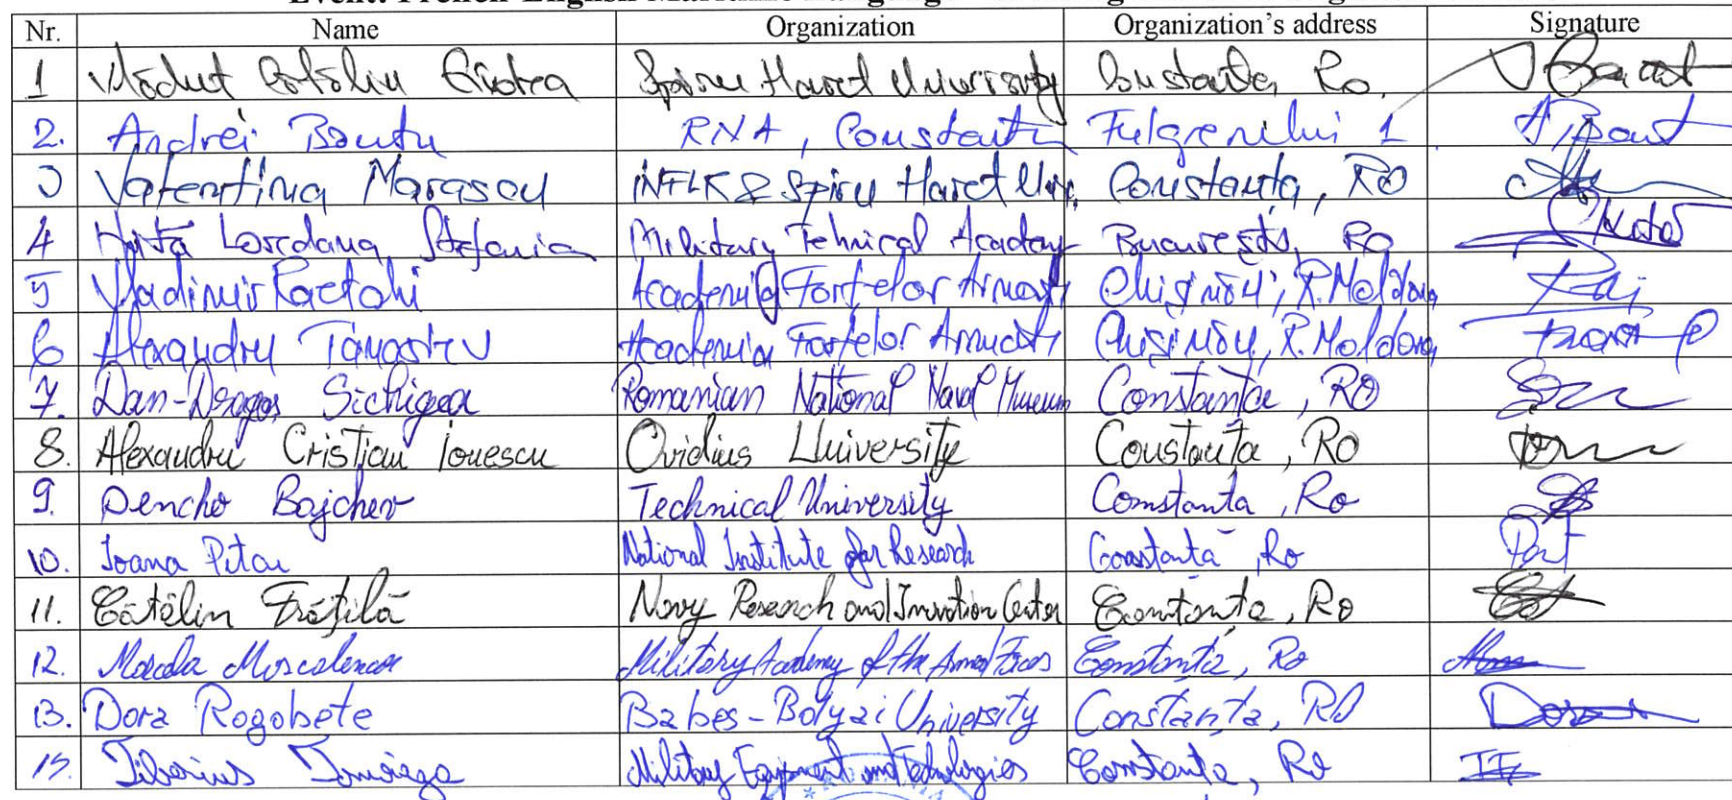 Nr. Name Organization Organization's address Signature
1 Vlăduț Cătălin Spiru Haret University Constanța, Ro.
2. Andrei Bautu RNA, Constanta Fulgerului 1
3 Valentina Marascu INFLPR & Spiru Haret Univ. Constanta, RO
4 Loredana Ștefania Military Tehnical Academy București, RO
5 Vladimir Academia Forțelor Armate Chișinău, R.Moldova
6 Alexandru Tanasiev Academia Forțelor Armate Chișinău, R.Moldova
7. Dan-Dragoș Sichigea Romanian National Naval Museum Constanța, RO
8. Alexandru Cristian Ionescu Ovidius University Constanța, RO
9. Dencho Bajchev Technical University Constanta, Ro
10. Ioana Pitau National Institute for Research Constanta, Ro
11. Cătălin Frățilă Navy Research and Inovation Center Constanța, RO
12. Moscalenco Military Academy of the Armed Forces Constanța, Ro
13. Dora Rogobete Babes-Bolyai University Constanța, RO
Tiberius Military Equipment and Technologies Constanta, Ro